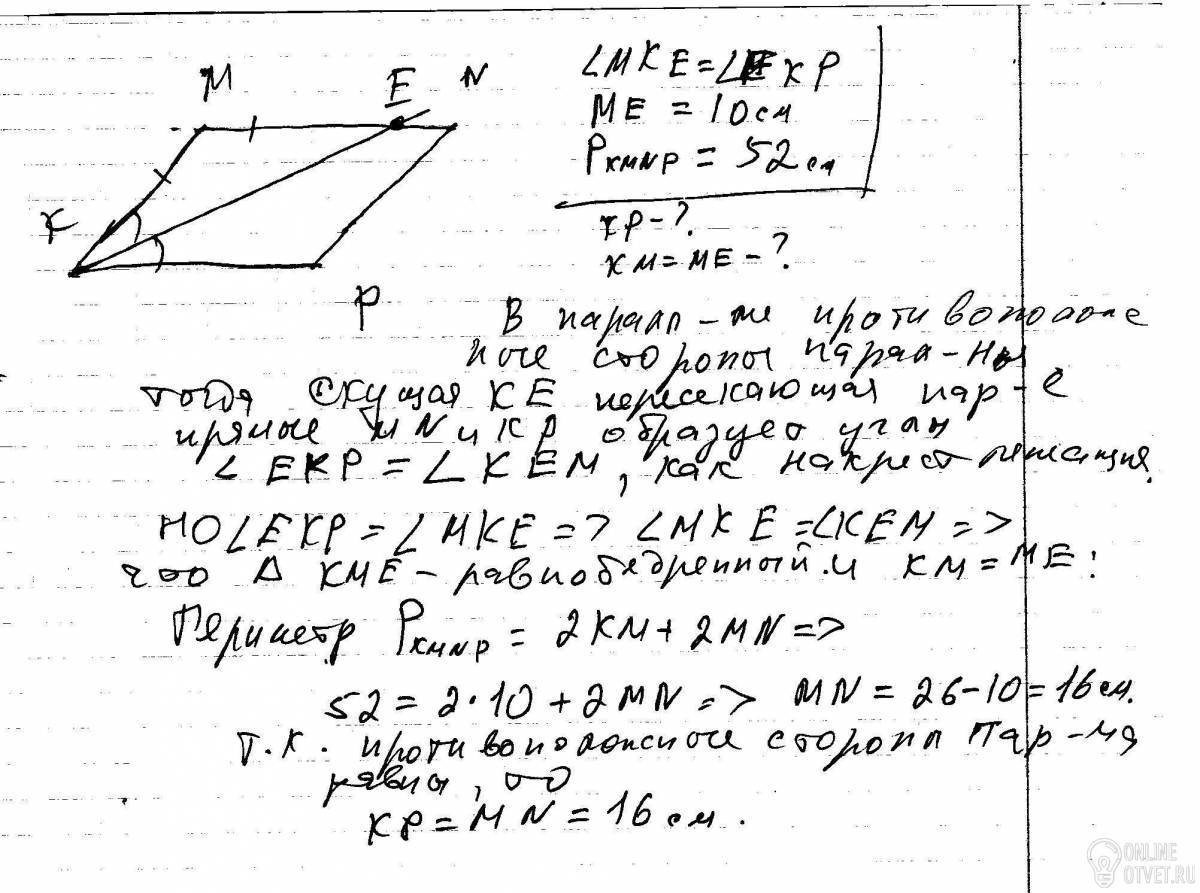 M E N
K
P
∠MKE = ∠EKP
ME = 10 см
P KMNP = 52 см
KP - ?
KM = ME - ?
В паралл-ме противополож
ные стороны парал-ны
тогда секущая KE пересекающая пар-е
прямые MN и KP образует углы
∠EKP = ∠KEM, как накрест лежащие.
НО ∠EKP = ∠MKE => ∠MKE = ∠KEM =>
что Δ KME - равнобедренный и KM = ME.
Периметр P KMNP = 2KM + 2MN =>
52 = 2·10 + 2MN => MN = 26-10 = 16 см.
Т.к. противоположные стороны пар-ма
равны, то
KP = MN = 16 см.
ONLINE
OTVET.RU